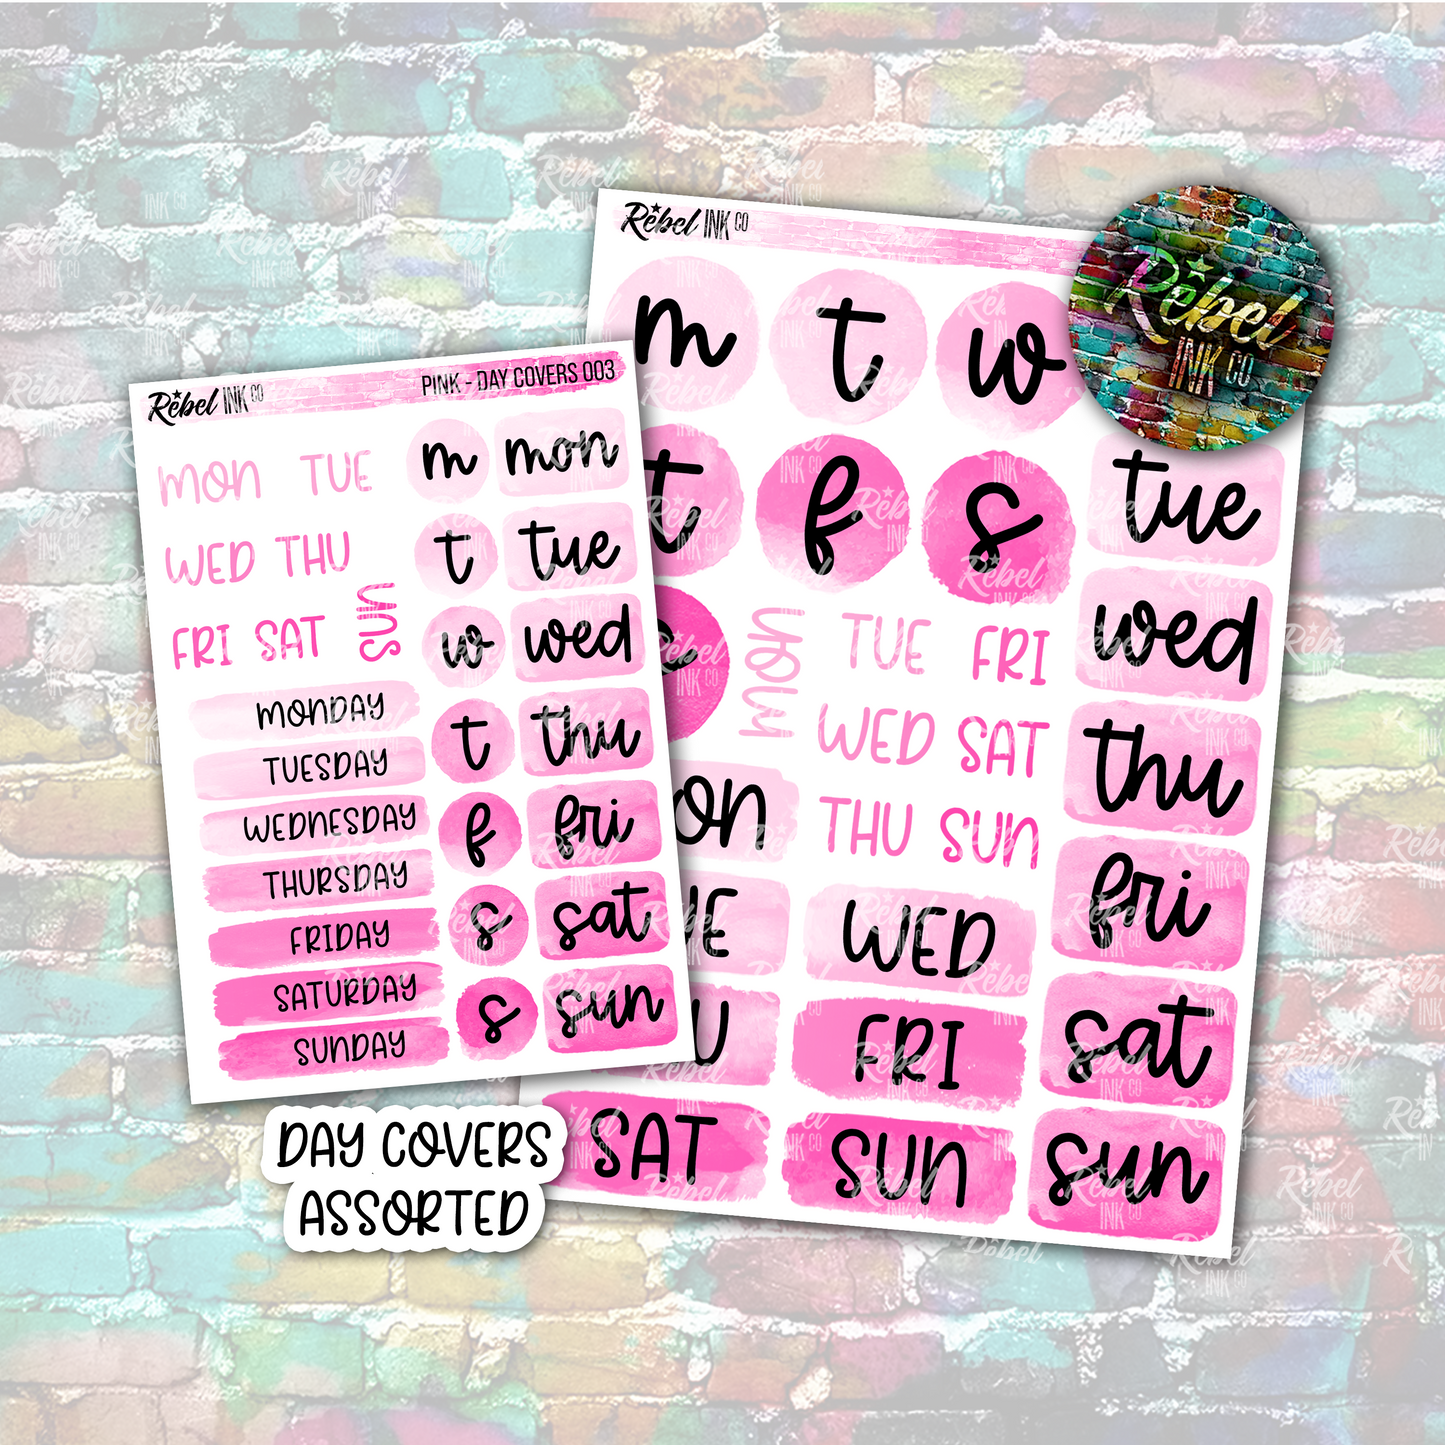 Rebel INK CO
PINK - DAY COVERS 003
MON TUE
WED THU
FRI SAT SUN
MONDAY
TUESDAY
WEDNESDAY
THURSDAY
FRIDAY
SATURDAY
SUNDAY
m mon
t tue
w wed
t thu
f fri
s sat
s sun
DAY COVERS
ASSORTED
Rebel INK CO
m t w
t f s
MON TUE FRI
WED SAT
THU SUN
WED
FRI
SAT SUN
tue
wed
thu
fri
sat
sun
Rebel
INK CO